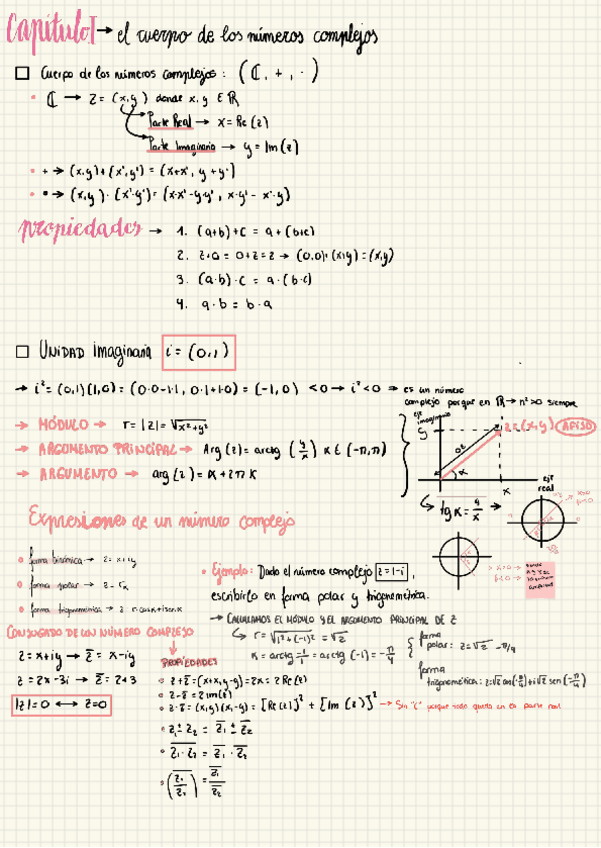 Capítulo I → el cuerpo de los números complejos
Cuerpo de los números complejos: (ℂ, +, ·)
• ℂ → z = (x,y) donde x, y ∈ ℝ
Parte Real → x = Re(z)
Parte Imaginaria → y = Im(z)
• + → (x,y)+(x',y') = (x+x', y+y')
• • → (x,y)·(x',y') = (x·x'-y·y', x·y'-x'·y)
propiedades → 1. (a+b)+c = a+(b+c)
2. z+0 = 0+z = z → (0,0)+(x,y) = (x,y)
3. (a·b)·c = a·(b·c)
4. a·b = b·a
UNIDAD imaginaria i = (0,1)
→ i² = (0,1)(1,0) = (0·0-1·1, 0·1+1·0) = (-1,0) <0 → i² <0 → es un número
complejo porque en ℝ → n² >0 siempre
→ MÓDULO → r = |z| = √x²+y²
→ ARGUMENTO PRINCIPAL → Arg(z) = arctg (y/x) α ∈ (-π,π)
→ ARGUMENTO → arg(z) = α + 2πk
eje
imaginario
z = (x,y) AFIJO
α
x
eje
real
tg α = y/x
Expresiones de un número complejo
• forma binómica → z = x+iy
• forma polar → z = rα
• forma trigonométrica →
• Ejemplo: Dado el número complejo z = 1-i,
escribirlo en forma polar y trigonométrica.
→ CALCULAMOS EL MÓDULO Y EL ARGUMENTO PRINCIPAL DE Z
r = √1²+(-1)² = √2
α = arctg -1/1 = arctg(-1) = -π/4
forma
polar: z = √2 -π/4
forma
trigonométrica: z = √2 cos(-π/4)+i√2 sen(-π/4)
CONJUGADO DE UN NÚMERO COMPLEJO
z = x+iy → z̅ = x-iy
z = 2x-3i → z̅ = 2+3
|z| = 0 ↔ z = 0
PROPIEDADES
• z+z̅ = (x+x, y-y) = 2x = 2Re(z)
• z-z̅ = 2 im(z)
• z·z̅ = (x,y)(x,-y) = [Re(z)]² + [Im(z)]² → Sin "i" porque todo queda en la parte real
• z₁ ± z₂ = z̅₁ ± z̅₂
• z₁·z₂ = z̅₁·z̅₂
• (z₁/z₂) = z̅₁/z̅₂